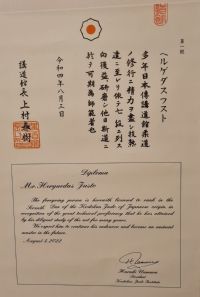 ヘルゲダスフスト
多年日本傳講道館柔道
ノ修行ニ精力ヲ盡シ技熟
達ニ至レリ依テ七段ニ列ス
向後益研磨シ他日斯道ニ
於テ可期為師範者也
令和四年八月三日
講道館長 上村春樹
Diploma
Mr. Justo
The foregoing person is herewith licensed to rank in the
Seventh Dan of the Kodokan Judo of Japanese origin, in
recognition of the great technical proficiency that he has attained
by his diligent study of the art for many years.
We expect him to continue his endeavor and become an eminent
master in the future.
August 3, 2022
Haruki Uemura
President
Kodokan Judo Institute